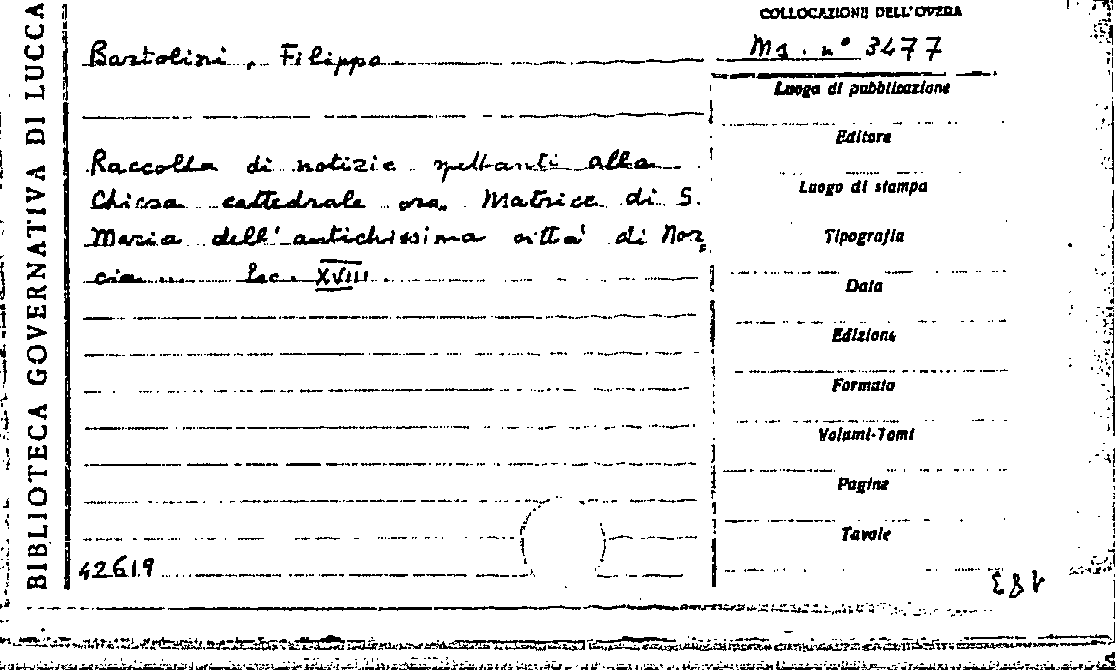 BIBLIOTECA GOVERNATIVA DI LUCCA
COLLOCAZIONE DELL'OPERA
Ms. n° 3477
Bartolini, Filippo
Raccolta di notizie spettanti alla
Chiesa cattedrale ora Matrice di S.
Maria dell'antichissima città di Nor
cia Sec. XVIII
Luogo di pubblicazione
Editore
Luogo di stampa
Tipografia
Data
Edizione
Formato
Volumi-Tomi
Pagine
Tavole
42619